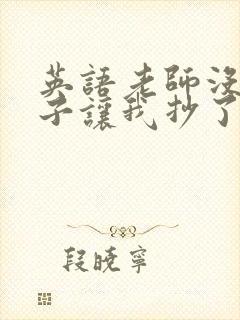 英語老師沒
子讓我抄了
段曉寧